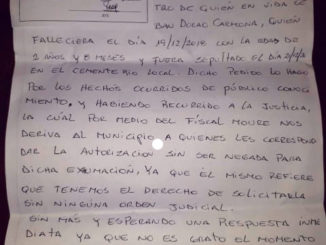 TRO DE QUIÉN EN VIDA SE
BAN DORAO CARMONA, QUIÉN
FALLECIERA EL DÍA 19/12/2018 CON LA EDAD DE
2 AÑOS Y 8 MESES Y FUERA SEPULTADO EL DIA
EN EL CEMENTERIO LOCAL. DICHO PEDIDO LO HAGO
POR LOS HECHOS OCURRIDOS DE PÚBLICO CONOCI
MIENTO, Y HABIENDO RECURRIDO A LA JUSTICIA,
LA CUÁL POR MEDIO DEL FISCAL MOURE NOS
DERIVA AL MUNICIPIO A QUIENES LES CORRESPON
DAR LA AUTORIZACION SIN SER NEGADA PARA
DICHA EXUMACIÓN, YA QUE ÉL MISMO REFIERE
QUE TENEMOS EL DERECHO DE SOLICITARLA
SIN NINGUNA ORDEN JUDICIAL.
SIN MÁS Y ESPERANDO UNA RESPUESTA INME
DIATA YA QUE NO ES GRATO EL MOMENTO